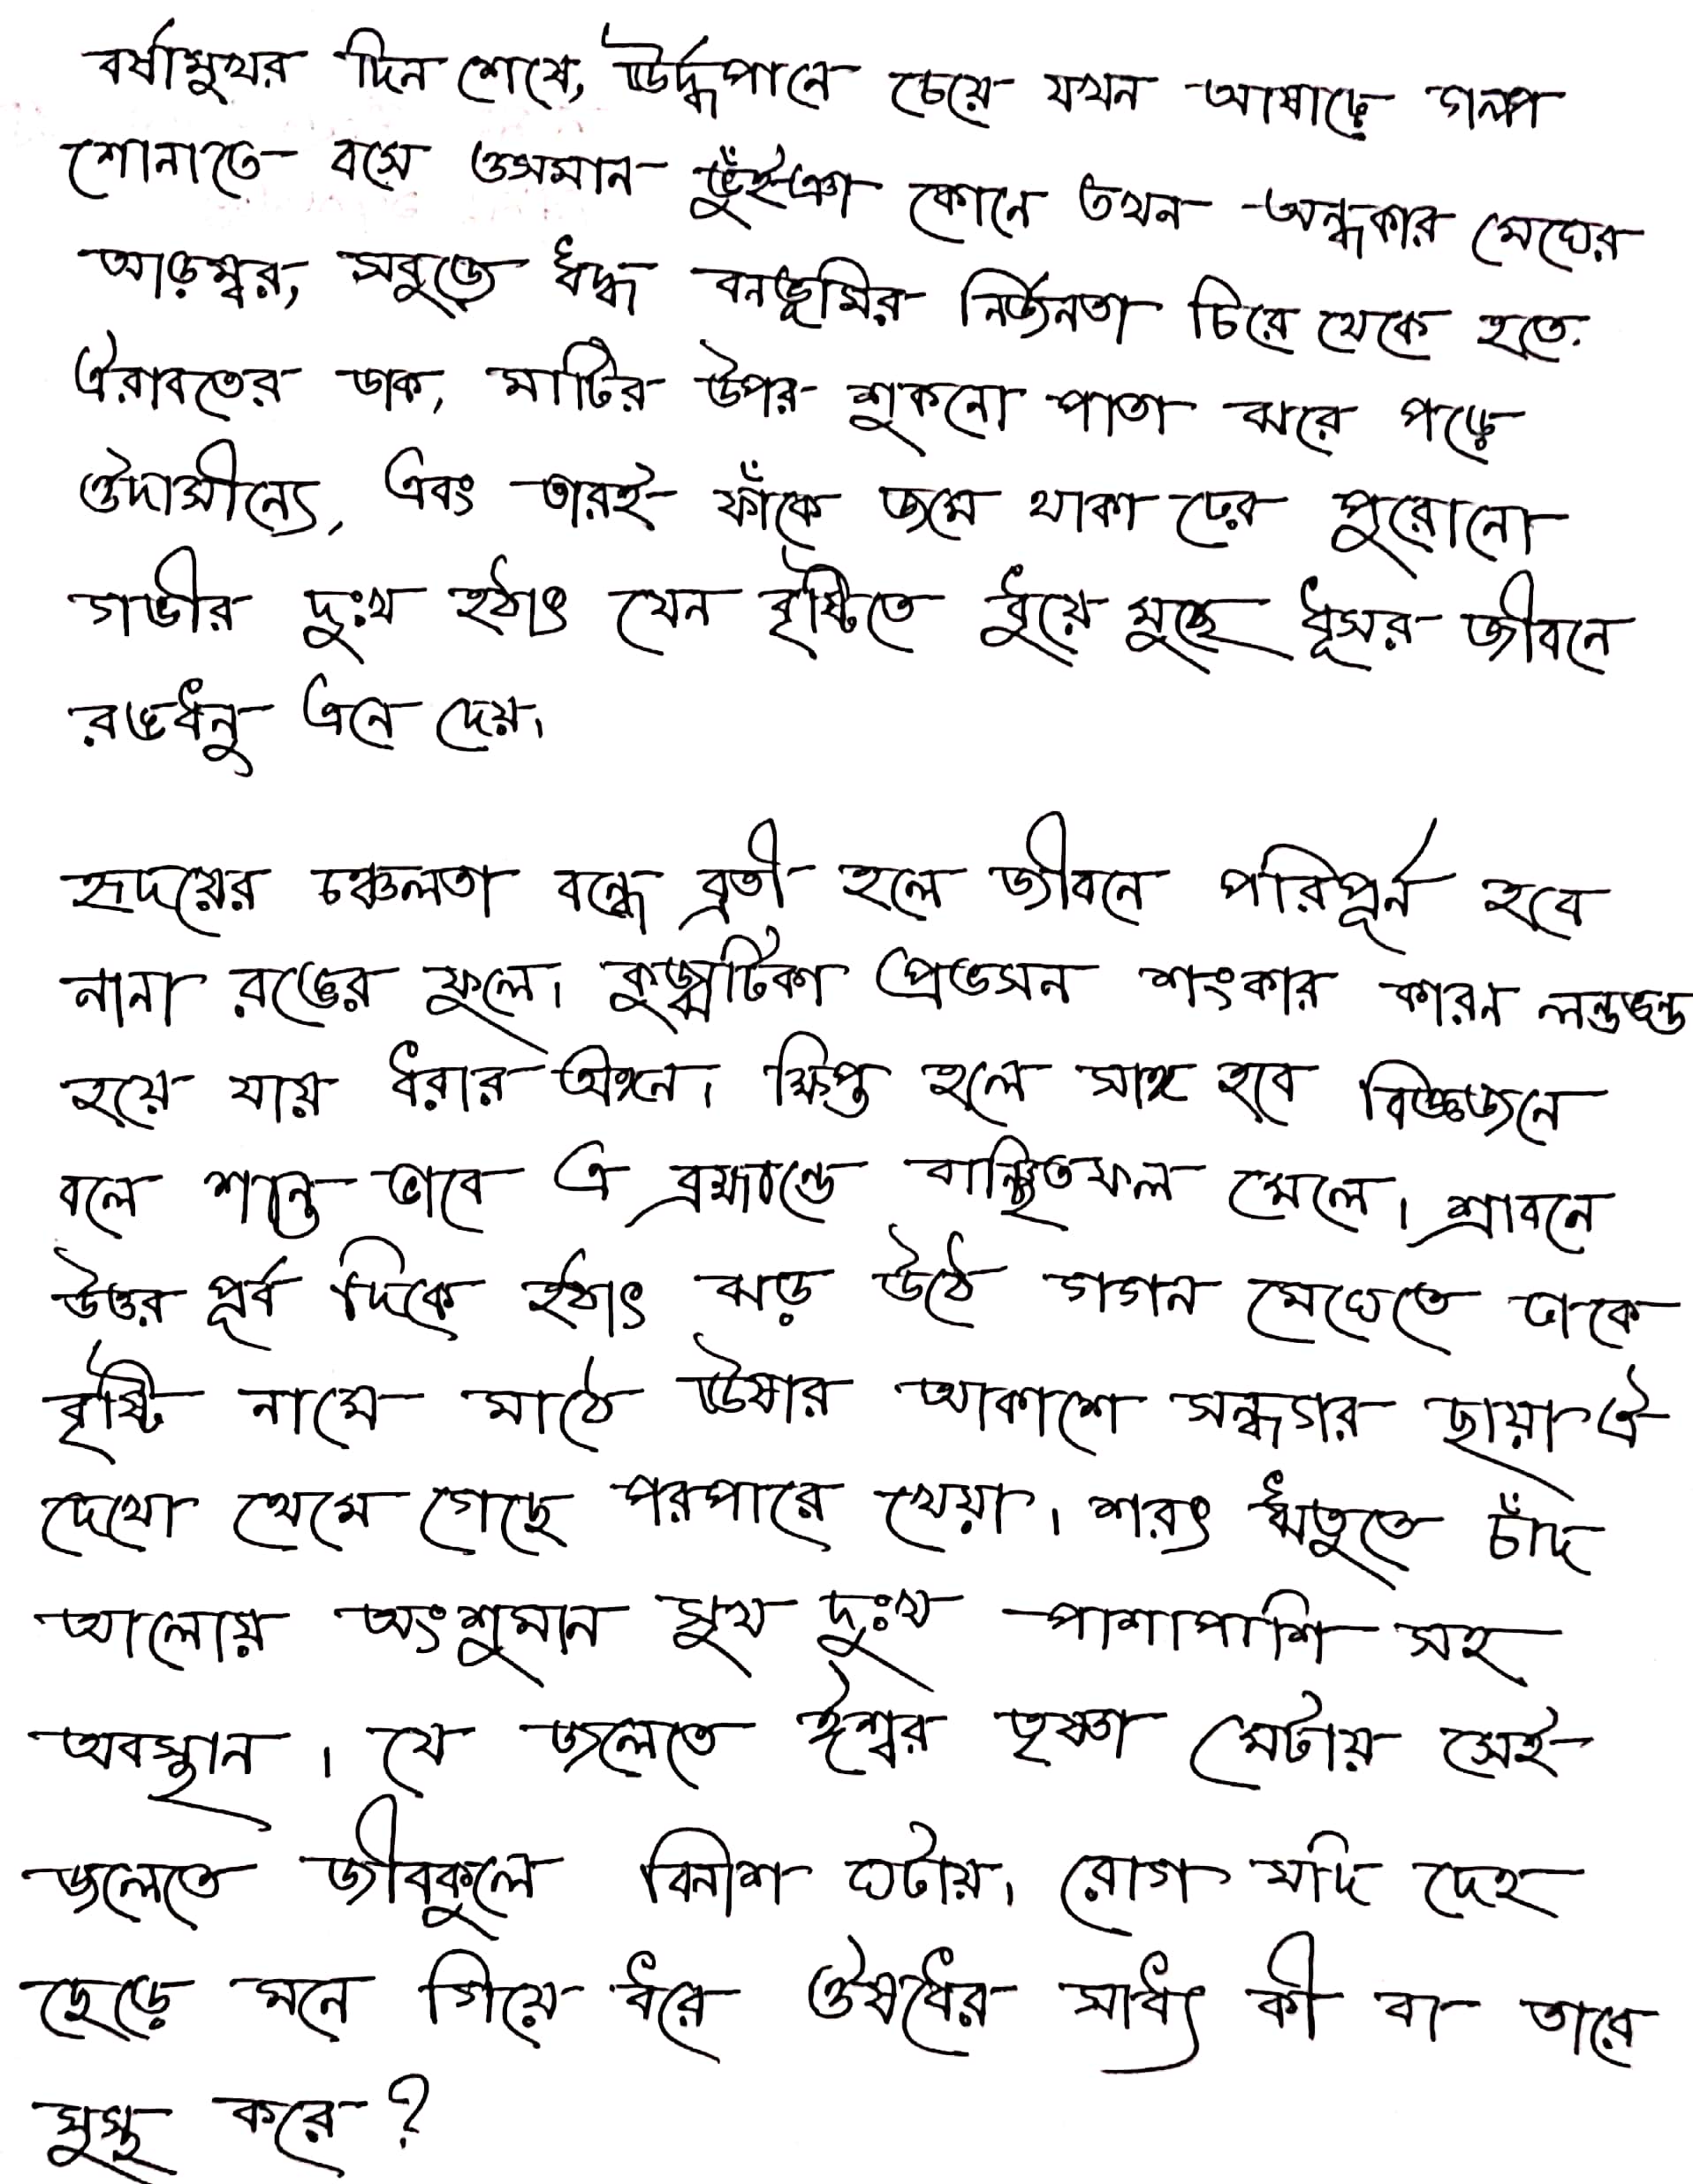 বর্ষামুখর দিন শেষে, ঊর্দ্ধপানে চেয়ে যখন আষাঢ়ে গল্প
শোনাতে বসে ওসমান ভুঁইঞা কোনে তখন অন্ধকার মেঘের
আড়ম্বর, সবুজে ঋদ্ধ বনভূমির নির্জনতা চিরে থেকে হতে
ঐরাবতের ডাক, মাটির উপর শুকনো পাতা ঝরে পড়ে
ঔদাসীন্যে, এবং তারই ফাঁকে জমে থাকা ঢের পুরোনো
গভীর দুঃখ হঠাৎ যেন বৃষ্টিতে ধুয়ে মুছে ধূসর জীবনে
রঙধনু এনে দেয়।
হৃদয়ের চঞ্চলতা বন্ধে ব্রতী হলে জীবনে পরিপূর্ন হবে
নানা রঙের ফুলে। কুজ্ঝটিকা প্রভঞ্জন শংকার কারন লন্ডভন্ড
হয়ে যায় ধরার অঙ্গন। ক্ষিপ্ত হলে সাঙ্গ হবে বিজ্ঞজনে
বলে শান্ত ভাবে এ ব্রহ্মান্ডে বাঞ্ছিতফল মেলে। শ্রাবনে
উত্তর পূর্ব দিকে হঠাৎ ঝড় উঠে গগন মেঘেতে ঢাকে
বৃষ্টি নামে মাঠে ঊষার আকাশে সন্ধ্যার ছায়া ঐ
দেখো থেমে গেছে পরপারে খেয়া। শরৎ ঋতুতে চাঁদ
আলোয় অংশুমান সুখ দুঃখ পাশাপাশি সহ
অবস্থান। যে জলেতে ঈশ্বর তৃষ্ণা মেটায় সেই
জলেতে জীবকুলে বিনাশ ঘটায়। রোগ যদি দেহ
ছেড়ে মনে গিয়ে ধরে ঔষধের সাধ্য কী বা তারে
সুস্থ করে?